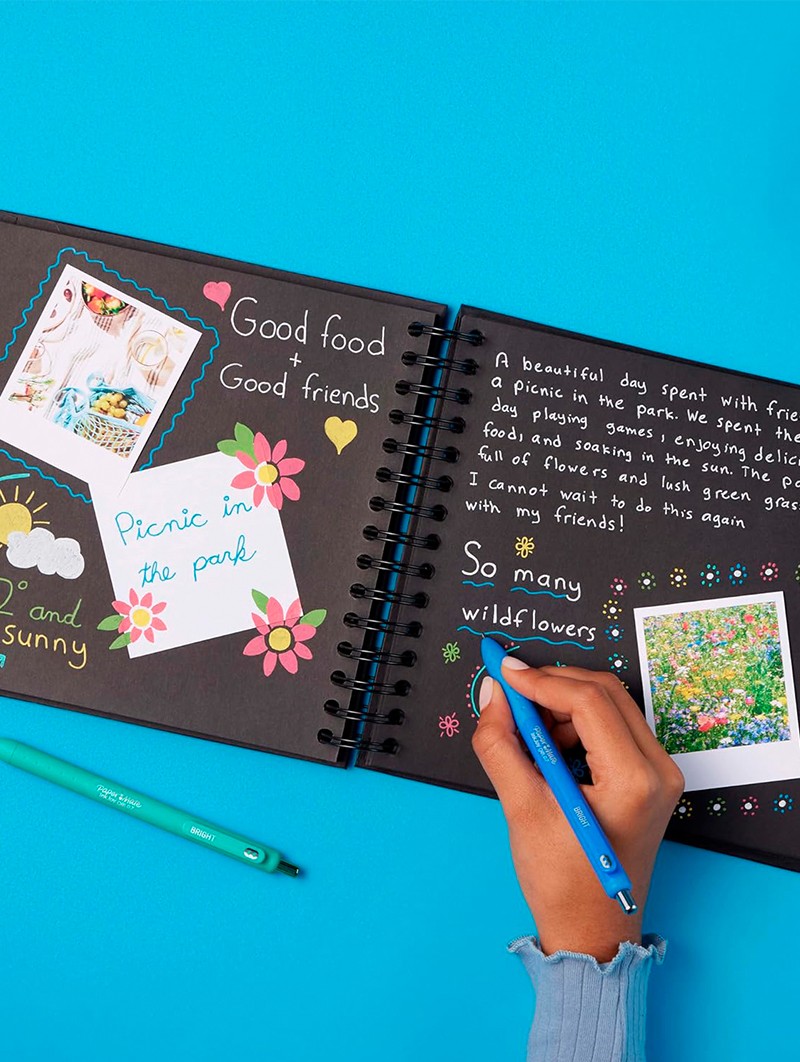 Good food
+
Good friends
Picnic in
the park
2° and
sunny
A beautiful day spent with
a picnic in the park. We spent the
day playing games, enjoying
food, and soaking in the sun. The
full of flowers and lush green
I cannot wait to do this again
with my friends!
So many
wildflowers
Paper Mate
InkJoy Gel 0.7
BRIGHT
Paper Mate
BRIGHT